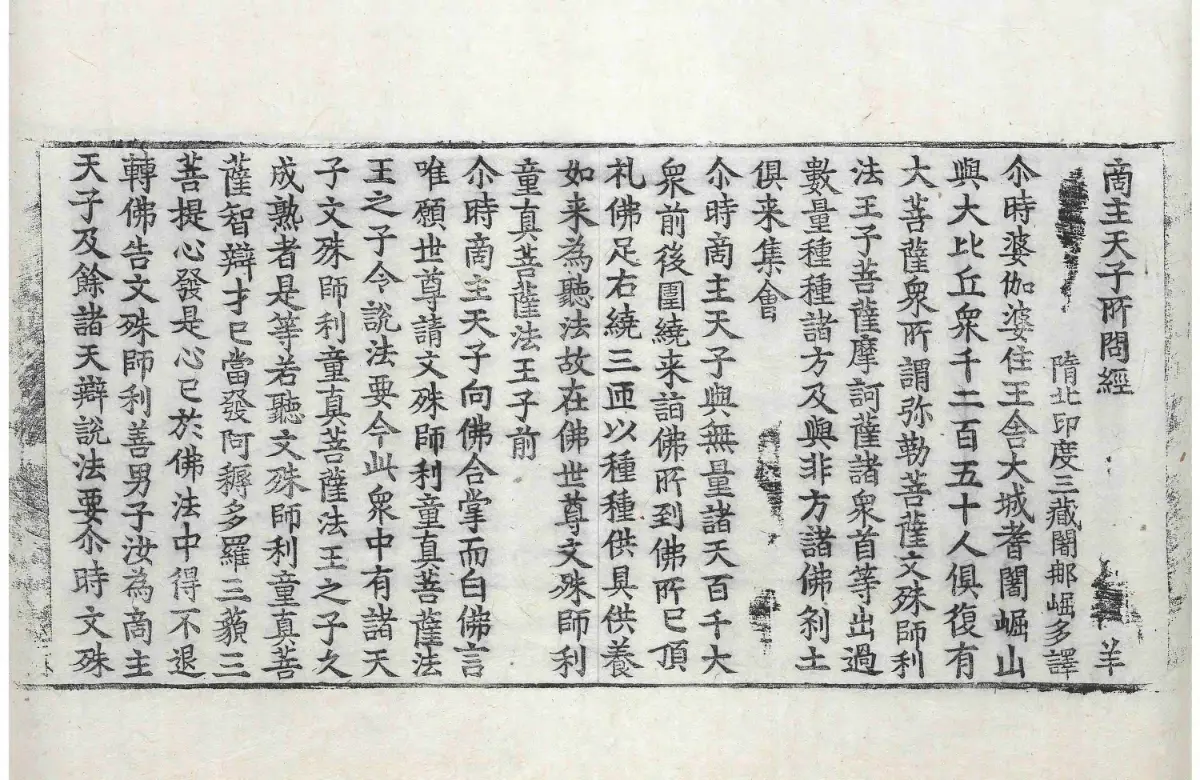 商主天子所問經 羊
隋北印度三藏闍那崛多譯
尒時婆伽婆住王舍大城耆闍崛山
與大比丘衆千二百五十人俱復有
大菩薩衆所謂弥勒菩薩文殊師利
法王子菩薩摩訶薩諸衆首等出過
數量種種諸方及與非方諸佛刹土
俱来集會
尒時商主天子與無量諸天百千大
衆前後圍繞来詣佛所到佛所已頂
礼佛足右繞三帀以種種供具供養
如来為聽法故在佛世尊文殊師利
童真菩薩法王子前
尒時商主天子向佛合掌而白佛言
唯願世尊請文殊師利童真菩薩法
王之子令說法要今此衆中有諸天
子文殊師利童真菩薩法王之子久
成熟者是等若聽文殊師利童真菩
薩智辯才已當發阿耨多羅三藐三
菩提心發是心已於佛法中得不退
轉佛告文殊師利善男子汝為商主
天子及餘諸天辯說法要尒時文殊